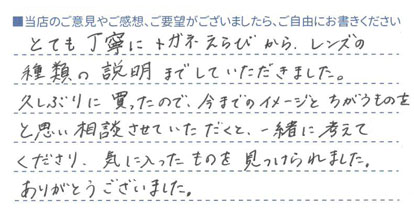 ■当店のご意見やご感想、ご要望がございましたら、ご自由にお書きください
とても丁寧にメガネえらびから、レンズの
種類の説明までしていただきました。
久しぶりに買ったので、今までのイメージとちがうものを
と思い相談させていただくと、一緒に考えて
くださり、気に入ったものを見つけられました。
ありがとうございました。